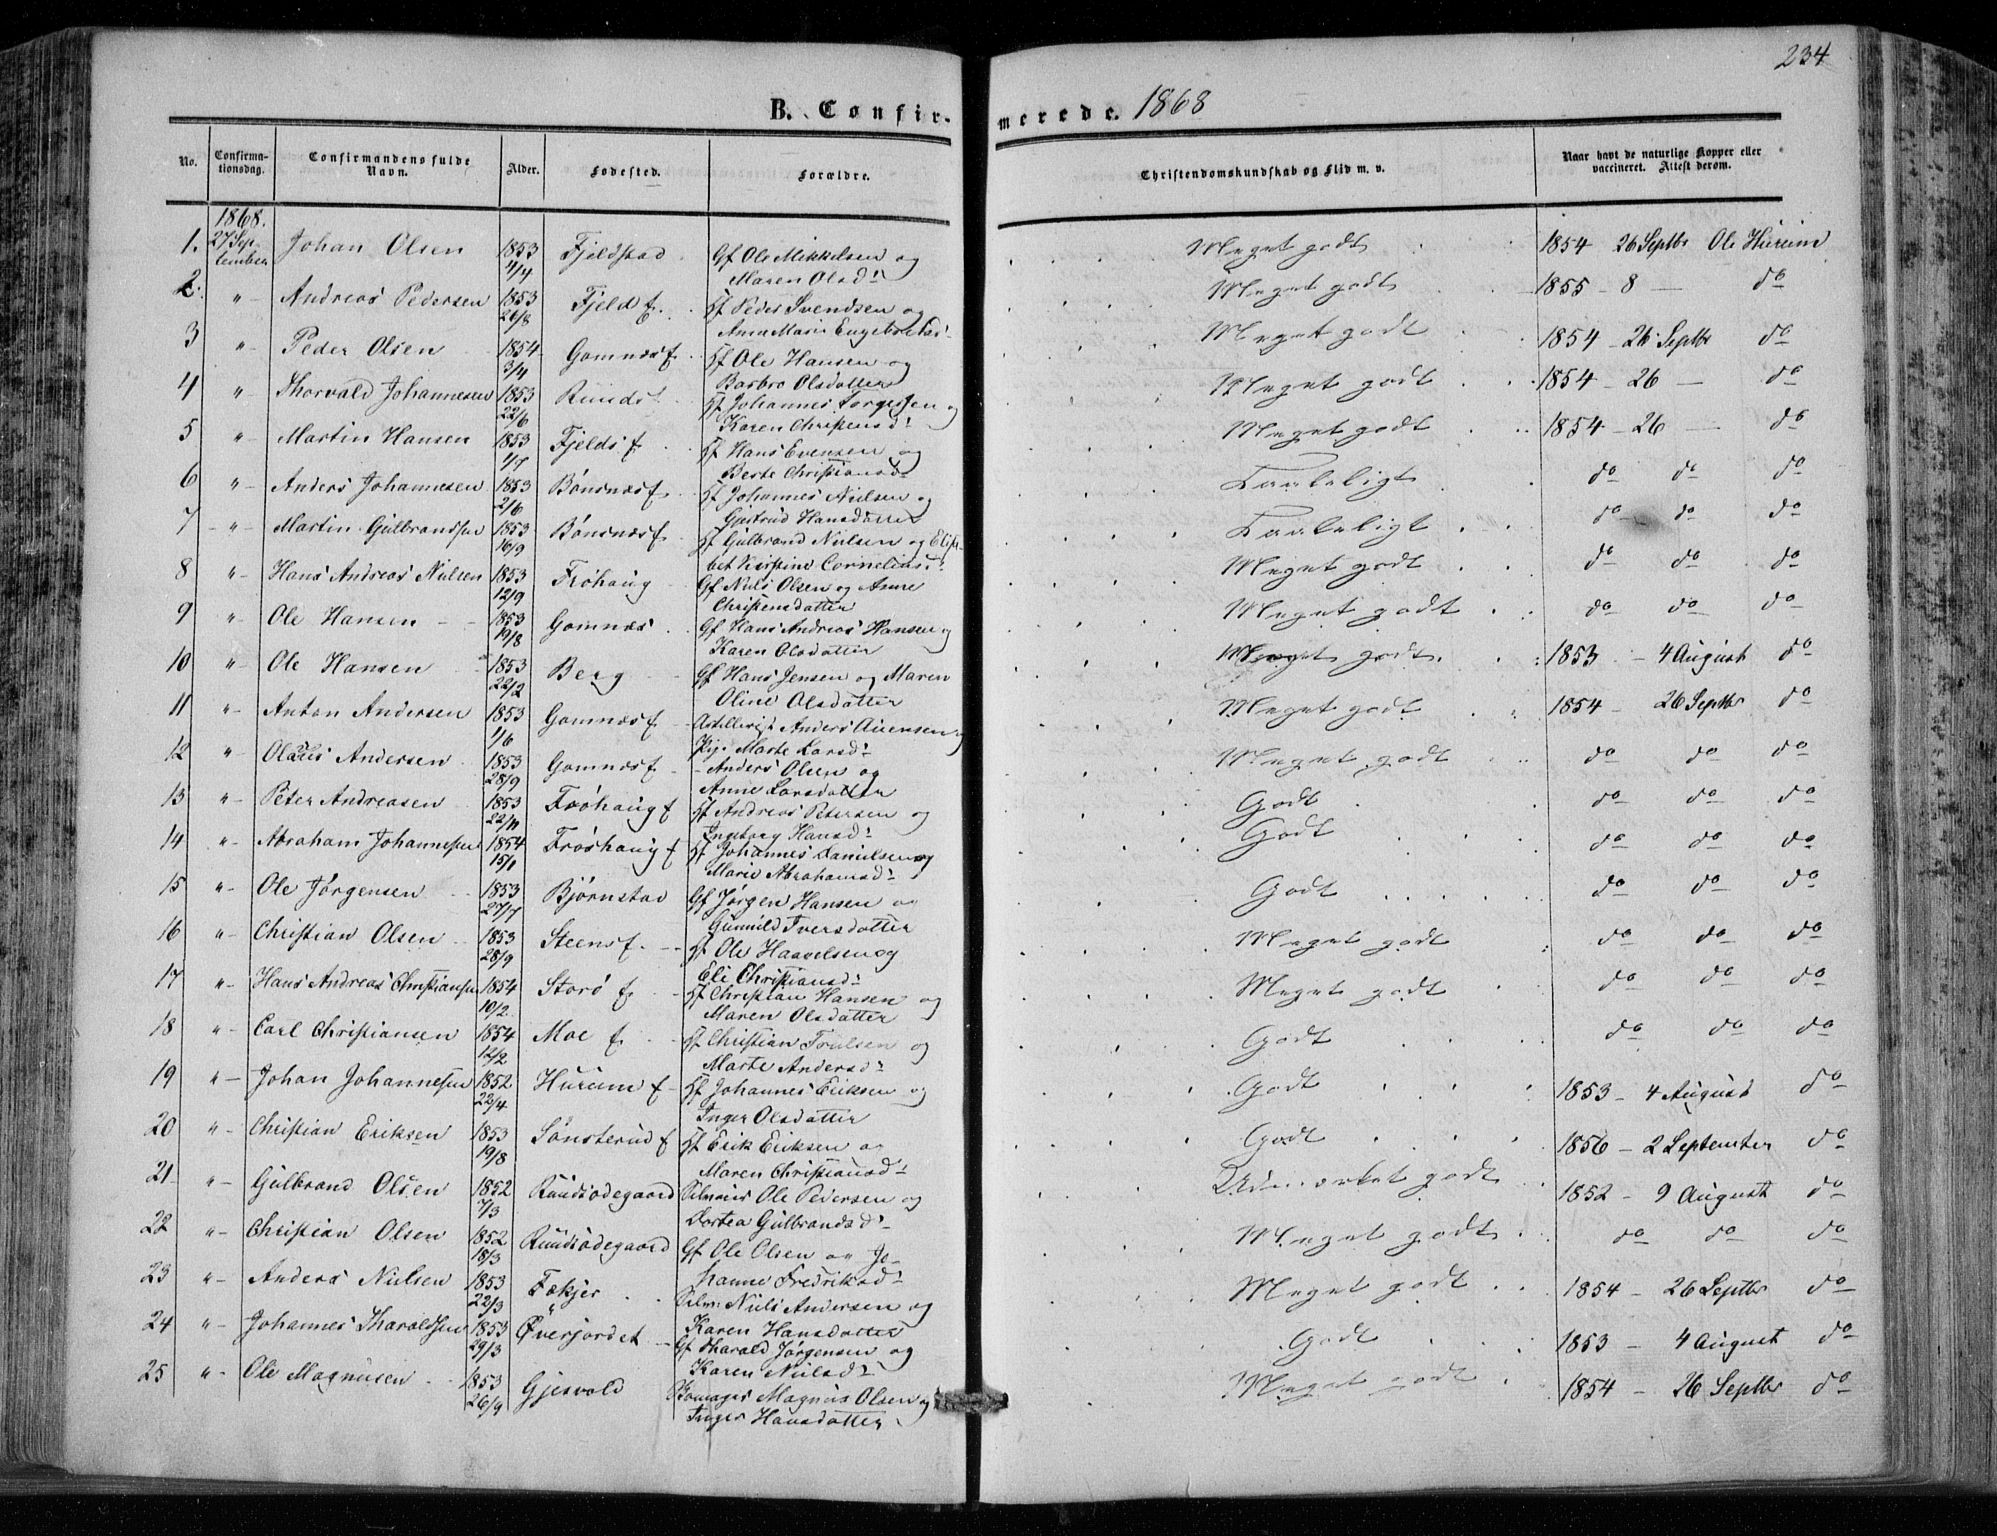 234
B. Confir- merede. 1868
No. Confirma-tionsdag. Confirmandens fulde Navn. Alder. Fødested. Forældre. Christendomskundskab og Flid m. v. Naar havt de naturlige Kopper eller vaccineret. Attest derom.
1868.
1. 27 Sep- Johan Olsen 1853 Fjeldstad Gf Ole Mikkelsen og Meget godt 1854 26 Septbr Ole Hurum
tember 4/4 Maren Olsdr
2. " Andreas Pedersen 1853 Fjeld f. Hf Peder Svendsen og Meget godt 1855 - 8 — do
26/8 Anne Marie Engebretsd
3 " Peder Olsen 1854 Gomnæs f Hf Ole Hansen og Meget godt 1854 - 26 Septbr do
3/4 Barbro Olsdatter
4 " Thorvald Johannesen 1853 Hf Johannes Torgersen og Meget godt 1854 - 26 — do
22/6 Karen Christensdr
5 " Martin Hansen 1853 Fjelds f. Hf Hans Evensen og Meget godt 1854 - 26 — do
1/7 Berte Christiansdr
6 " Anders Johannesen 1853 Bønsnæs f Hf Johannes Nielsen og Taaleligt do do do
2/6 Gjertrud Hansdatter
7 " Martin Gulbrandsen 1853 Bønsnæs f Hf Gulbrand Nielsen og Elisa- Taaleligt do do do
16/9 bet Kirstine Corneliusdr
8 " Hans Andreas Nielsen 1853 Frøhaug Gf Niels Olsen og Anne Meget godt do do do
12/9 Christensdatter
9 " Ole Hansen 1853 Gomnæs Gf Hans Andreas Hansen og Meget godt do do do
19/8 Karen Olsdatter
10 " Ole Hansen 1853 Berg Gf Hans Jensen og Maren Meget godt 1853 - 4 August do
22/2 Oline Olsdatter
11 " Anton Andersen 1853 Gomnæs f Artillerist Anders Auensen og Meget godt 1854 - 26 Septbr do
1/6 Pige Marte Larsdr
12 " Olaus Andersen 1853 Gomnæs f - Anders Olsen og Meget godt do do do
28/9 Anne Larsdatter
13 " Peter Andreasen 1853 Frøhaug f Hf Andreas Petersen og Godt do do do
22/11 Ingeborg Hansdr
14 " Abraham Johannesen 1854 Frøshaug f Hf Johannes Danielsen og Godt do do do
15/1 Marie Abrahamsdr
15 " Ole Jørgensen 1853 Bjørnstad Gf Jørgen Hansen og Godt do do do
27/7 Gunnild Iversdatter
16 " Christian Olsen 1853 Steens f. Hf Ole Haavelsen og Meget godt do do do
28/9 Eli Christiansdr
17 " Hans Andreas Christiansen 1854 Storø f. Hf Christian Hansen og Meget godt do do do
10/2 Maren Olsdatter
18 " Carl Christiansen 1854 Moe f. Hf Christian Trulsen og Godt do do do
12/2 Marte Andersdr
19 " Johan Johannesen 1852 Hurum f Hf Johannes Eriksen og Godt 1853 - 4 August do
22/4 Inger Olsdatter
20 " Christian Eriksen 1853 Sønsterud f Hf Erik Eriksen og Godt 1856 - 2 September do
19/8 Maren Christiansdr
21 " Gulbrand Olsen 1852 Ruudsødegaard Selveier Ole Pedersen og Udmærket godt 1852 - 9 August do
7/3 Dortea Gulbrandsdr
22 " Christian Olsen 1852 Ruudsødegaard Gf Ole Olsen og Jo- Meget godt do do do
18/3 hanne Fredriksdr
23 " Anders Nielsen 1853 Fækjer Selv. Niels Andersen og Meget godt 1854 - 26 Septbr do
22/3 Karen Hansdatter
24 " Johannes Tharaldsen 1853 Øverjordet Gf Tharald Jørgensen og Godt 1853 4 August do
29/3 Karen Nielsdr
25 " Ole Magnusen 1853 Gjesvold Magnus Olsen og Meget godt 1854 - 26 Septbr do
26/9 Inger Hansdatter